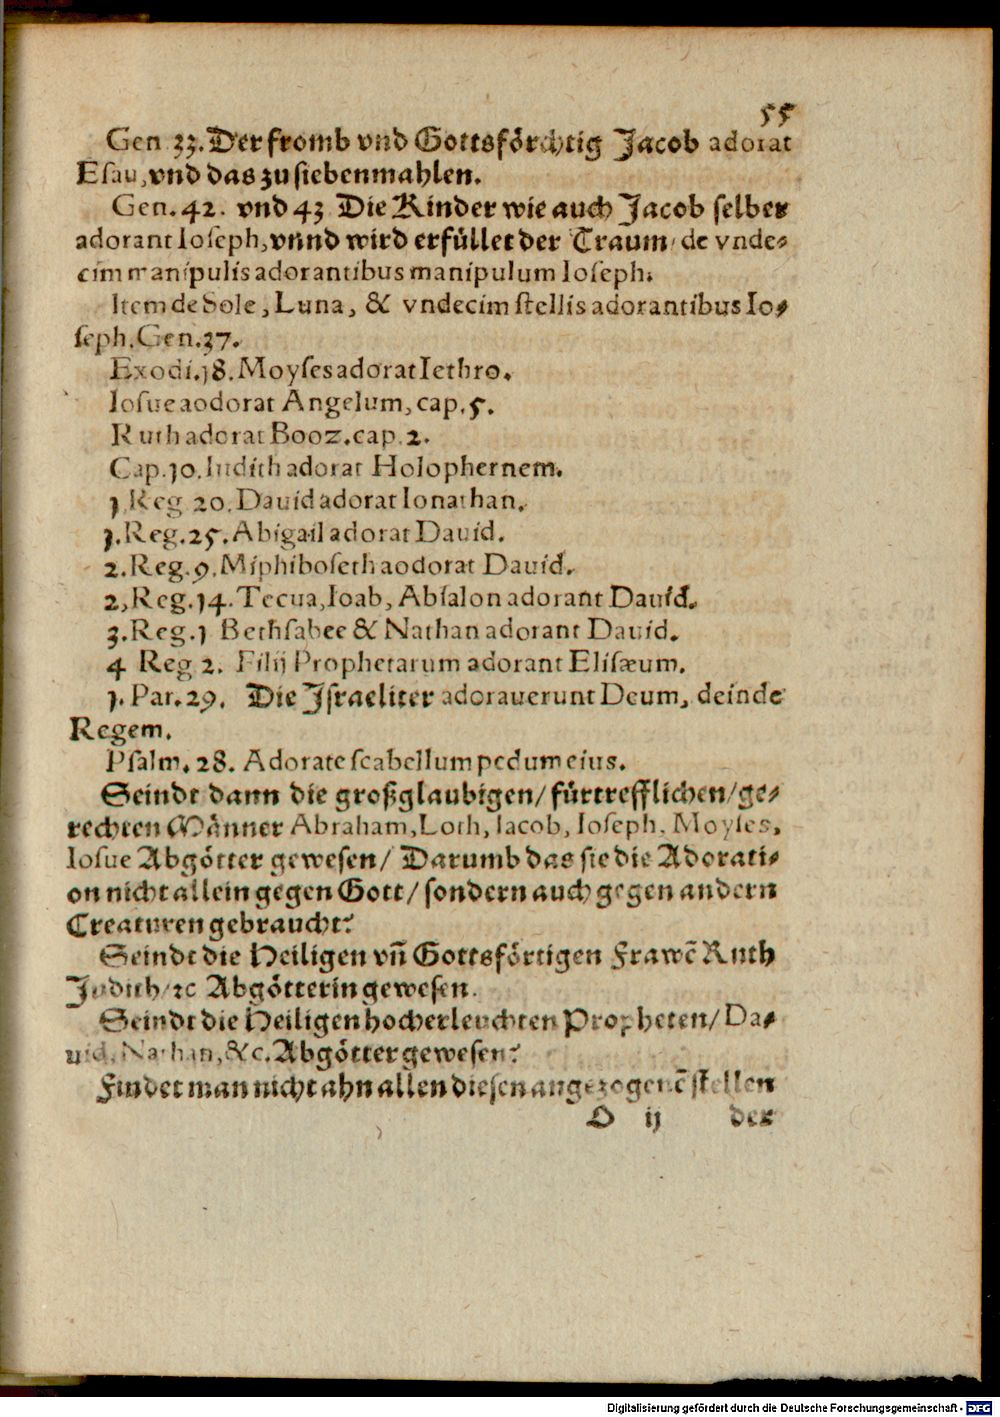 55
Gen 33. Der fromb vnd Gottsförchtig Jacob adorat
Esau, vnd das zu siebenmahlen.
Gen. 42. vnd 43 Die Kinder wie auch Jacob selber
adorant Ioseph, vnnd wird erfüllet der Traum / de vnde-
cim manipulis adorantibus manipulum Ioseph.
Item de Sole, Luna, & vndecim stellis adorantibus Io-
seph. Gen. 37.
Exodi. 18. Moyses adorat Iethro.
Iosue aodorat Angelum, cap. 5.
Ruth adorat Booz. cap. 2.
Cap. 10. Iudith adorat Holophernem.
1 Reg 20. Dauid adorat Ionathan.
1. Reg. 25. Abigail adorat Dauid.
2. Reg. 9. Miphiboseth aodorat Dauid.
2, Reg. 14. Tecua, Ioab, Absalon adorant Dauid.
3. Reg. 1 Bethsabee & Nathan adorant Dauid.
4 Reg 2. Filij Prophetarum adorant Elisæum.
1. Par. 29. Die Israeliter adorauerunt Deum, deinde
Regem.
Psalm. 28. Adorate scabellum pedum eius.
Seindt dann die großglaubigen / fürtrefflichen / ge-
rechten Männer Abraham, Loth, Iacob, Ioseph, Moyses,
Iosue Abgötter gewesen / Darumb das sie die Adorati-
on nicht allein gegen Gott / sondern auch gegen andern
Creaturen gebraucht?
Seindt die Heiligen vn̄ Gottsförtigen Frawē Ruth
Judith / ꝛc Abgötterin gewesen.
Seindt die Heiligen hocherleuchten Propheten / Da-
uid, Nathan, &c. Abgötter gewesen?
Findet man nicht ahn allen diesen angezogenē stellen
O ij der
Digitalisierung gefördert durch die Deutsche Forschungsgemeinschaft - DFG